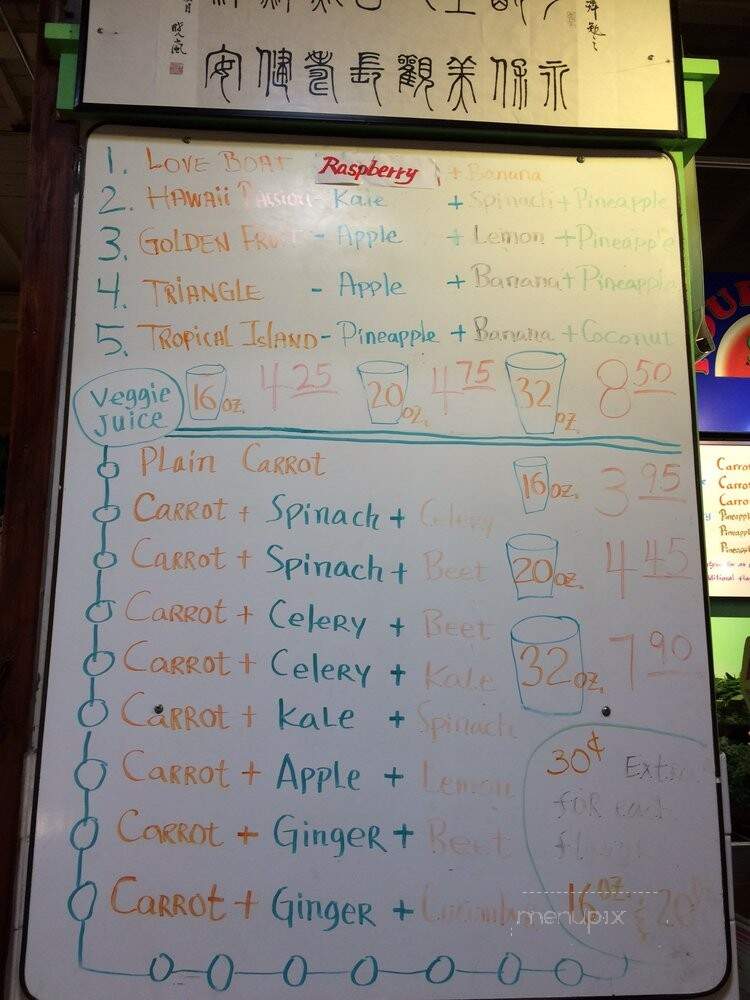 安健壽長觀美保永
曉嵐
1. LOVE BOAT Raspberry + Banana
2. HAWAII PASSION - Kale + Spinach + Pineapple
3. GOLDEN FRUIT - Apple + Lemon + Pineapple
4. TRIANGLE - Apple + Banana + Pineapple
5. TROPICAL ISLAND - Pineapple + Banana + Coconut
Veggie Juice
16 oz. 4 25 20 oz. 4 75 32 oz. 8 50
PLAIN CARROT
16 oz. 3 95
CARROT + Spinach + Celery
CARROT + Spinach + Beet
20 oz. 4 45
CARROT + CELERY + Beet
CARROT + CELERY + Kale
32 oz. 7 90
CARROT + KALE + Spinach
CARROT + APPLE + Lemon
CARROT + GINGER + Beet
CARROT + GINGER + Cucumber
30¢ Extra
FOR each
16 oz & 20
menupix
Carrot
Carrot
Carrot
Pineapple
Pineapple
Pineapple